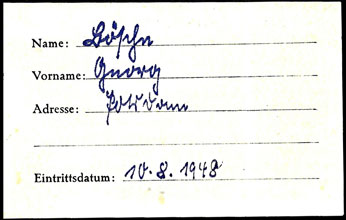 Name: Bösche
Vorname: Georg
Adresse: Potsdam
Eintrittsdatum: 10.8.1948